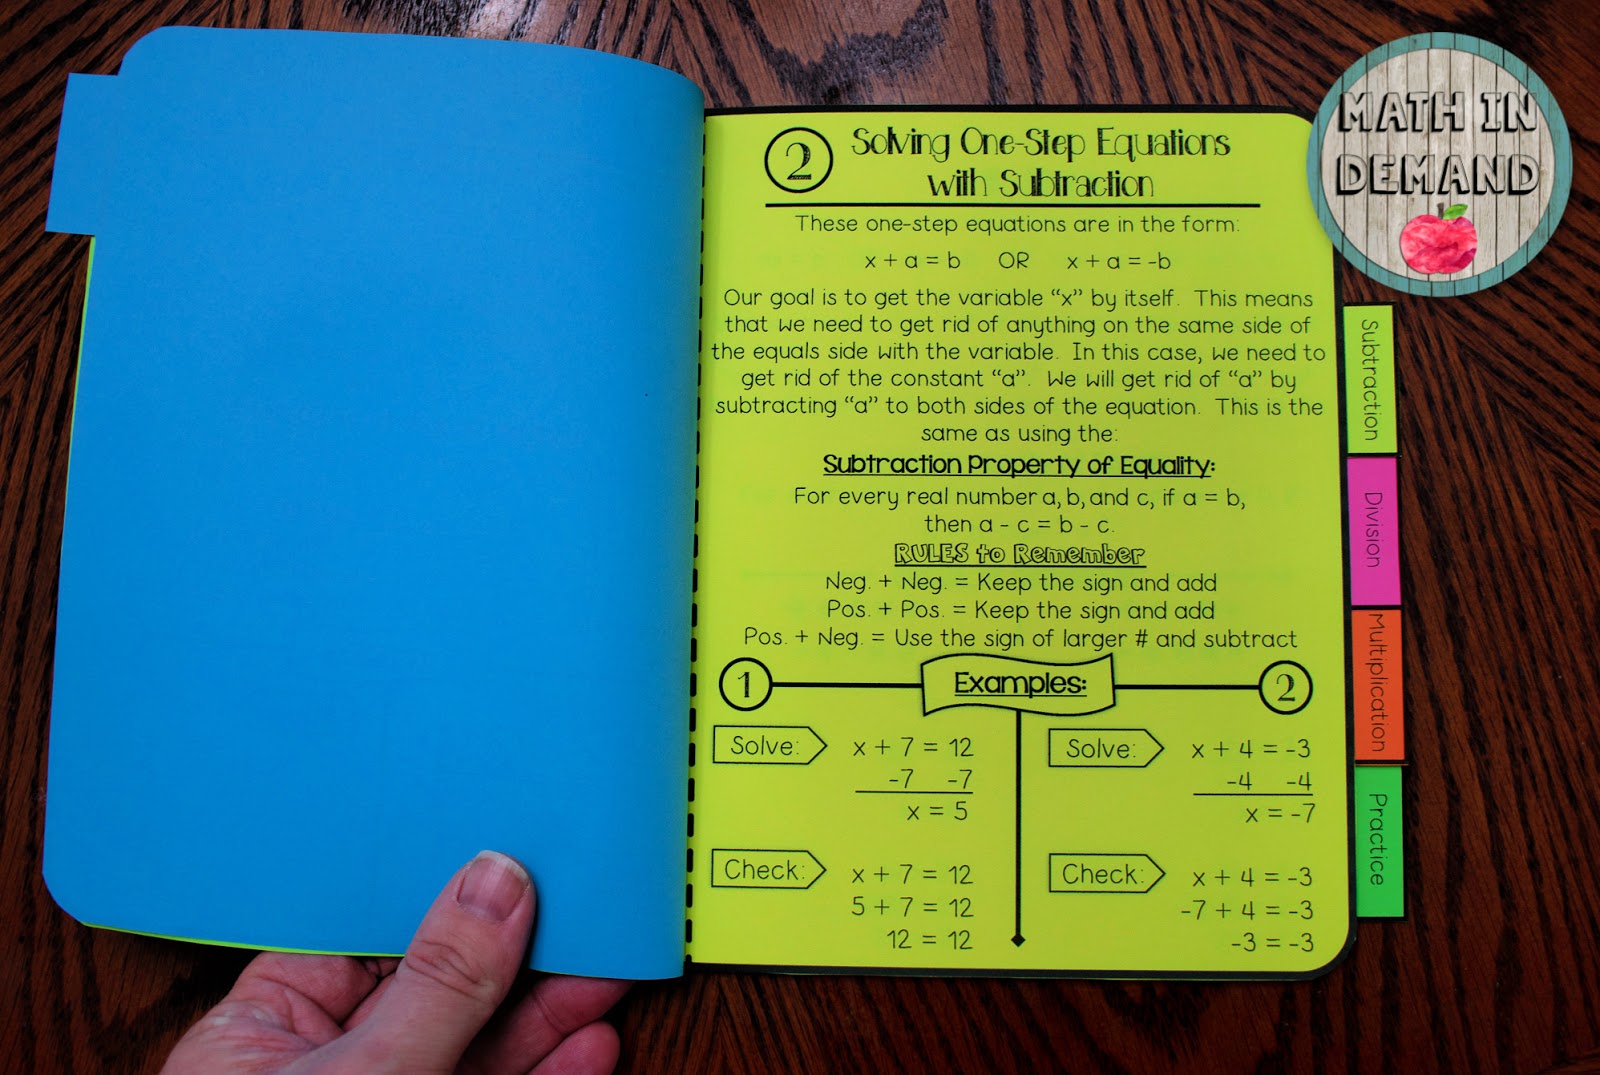 2
Solving One-Step Equations
with Subtraction
These one-step equations are in the form:
x + a = b OR x + a = -b
Our goal is to get the variable “x” by itself. This means
that we need to get rid of anything on the same side of
the equals side with the variable. In this case, we need to
get rid of the constant “a”. We will get rid of “a” by
subtracting “a” to both sides of the equation. This is the
same as using the:
Subtraction Property of Equality:
For every real number a, b, and c, if a = b,
then a - c = b - c.
RULES to Remember
Neg. + Neg. = Keep the sign and add
Pos. + Pos. = Keep the sign and add
Pos. + Neg. = Use the sign of larger # and subtract
1 Examples: 2
Solve: x + 7 = 12
-7 -7
x = 5
Check: x + 7 = 12
5 + 7 = 12
12 = 12
Solve: x + 4 = -3
-4 -4
x = -7
Check: x + 4 = -3
-7 + 4 = -3
-3 = -3
Subtraction
Division
Multiplication
Practice
MATH IN
DEMAND